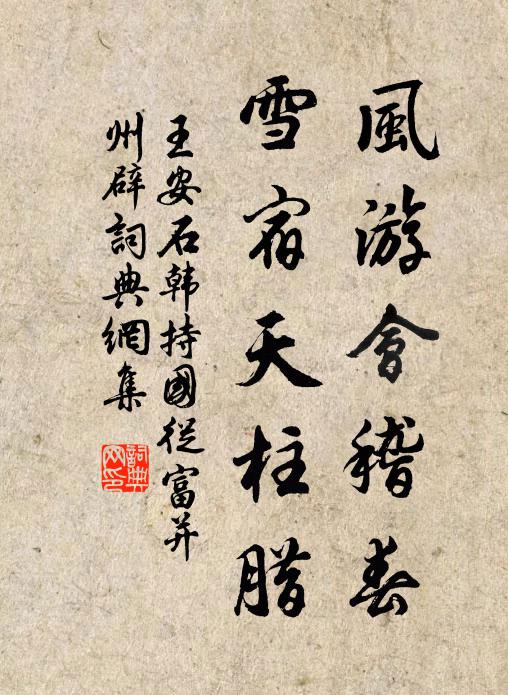 風游會稽春
雪宿天柱腊
王安石韩持國從富并
州辟詞典網集
詞典网印